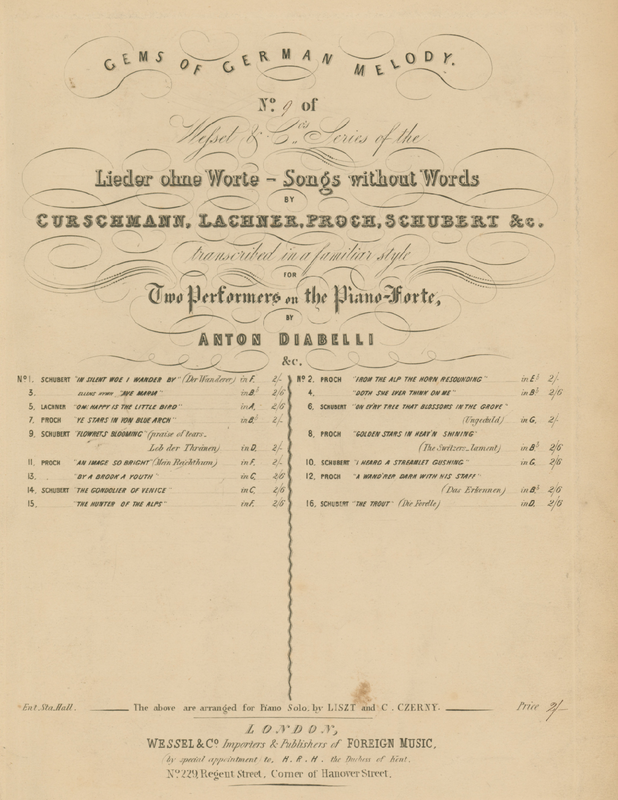 GEMS OF GERMAN MELODY.
No. 9 of
Wessel & Co's. Series of the
Lieder ohne Worte - Songs without Words
BY
CURSCHMANN, LACHNER, PROCH, SCHUBERT &c.
transcribed in a familiar style
FOR
Two Performers on the Piano-Forte,
BY
ANTON DIABELLI
&c.
No 1. SCHUBERT "IN SILENT WOE I WANDER BY" (Der Wanderer) in F. 2/-
3. ELLENS HYMN "AVE MARIA" in B♭ 2/6
5. LACHNER "OH! HAPPY IS THE LITTLE BIRD" in A. 2/6
7. PROCH "YE STARS IN YON BLUE ARCH" in B♭ 2/-
9. SCHUBERT "FLOWRETS BLOOMING" (praise of tears.
Lob der Thränen) in D. 2/-
11. PROCH "AN IMAGE SO BRIGHT" (Mein Reichthum) in F. 2/-
13. "BY A BROOK A YOUTH" in G. 2/6
14. SCHUBERT "THE GONDOLIER OF VENICE" in C. 2/6
15. "THE HUNTER OF THE ALPS" in F. 2/6
No 2. PROCH "FROM THE ALP THE HORN RESOUNDING" in E♭ 2/-
4. "DOTH SHE EVER THINK ON ME" in B♭ 2/6
6. SCHUBERT "ON EV'RY TREE THAT BLOSSOMS IN THE GROVE"
(Ungeduld) in G. 2/-
8. PROCH "GOLDEN STARS IN HEAV'N SHINING"
(The Switzers lament) in B♭ 2/6
10. SCHUBERT "I HEARD A STREAMLET GUSHING" in G. 2/6
12. PROCH "A WAND'RER DARK WITH HIS STAFF"
(Das Erkennen) in B♭ 2/6
16. SCHUBERT "THE TROUT" (Die Forelle) in D. 2/6
Ent. Sta. Hall. The above are arranged for Piano Solo, by LISZT and C. CZERNY. Price 2/-
LONDON,
WESSEL & Co Importers & Publishers of FOREIGN MUSIC,
(by special appointment to, H. R. H. the Duchess of Kent.
No. 229, Regent Street, Corner of Hanover Street.